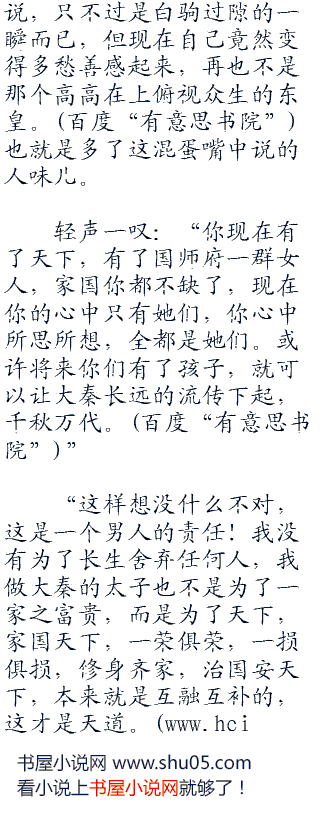 说，只不过是白驹过隙的一
瞬而已，但现在自己竟然变
得多愁善感起来，再也不是
那个高高在上俯视众生的东
皇。(百度“有意思书院”)
也就是多了这混蛋嘴中说的
人味儿。
轻声一叹：“你现在有
了天下，有了国师府一群女
人，家国你都不缺了，现在
你的心中只有她们，你心中
所思所想，全都是她们。或
许将来你们有了孩子，就可
以让大秦长远的流传下起，
千秋万代。(百度“有意思书
院”)”
“这样想没什么不对，
这是一个男人的责任！我没
有为了长生舍弃任何人，我
做大秦的太子也不是为了一
家之富贵，而是为了天下，
家国天下，一荣俱荣，一损
俱损，修身齐家，治国安天
下，本来就是互融互补的，
这才是天道。(www.hci
书屋小说网 www.shu05.com
看小说上书屋小说网就够了！